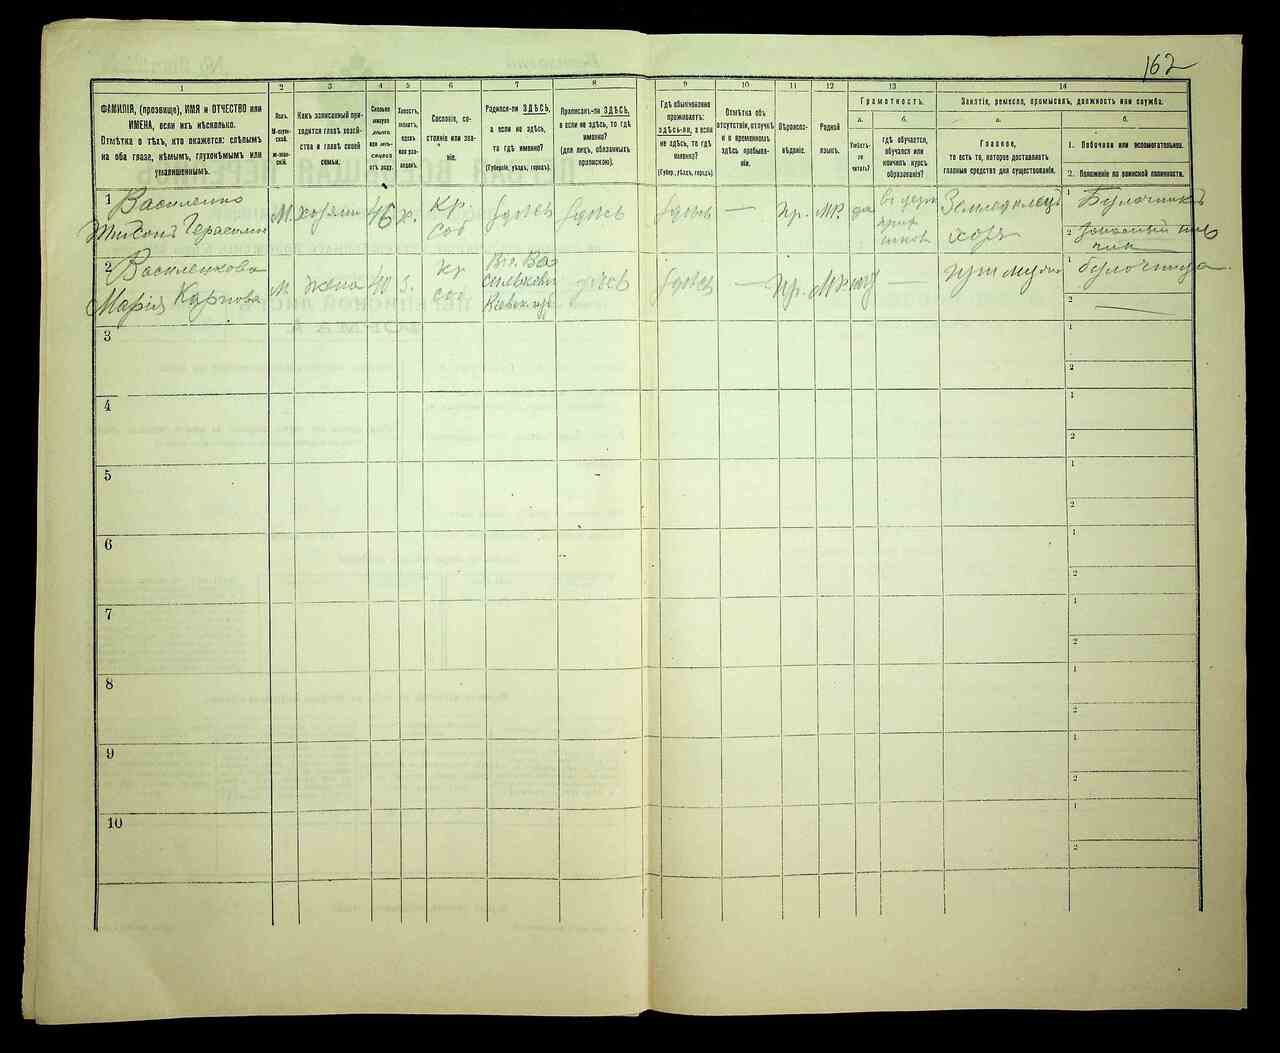 162
1
2
3
4
5
6
7
8
9
10
11
12
13
14
ФАМИЛІЯ, (прозвище), ИМЯ и ОТЧЕСТВО или
ИМЕНА, если ихъ нѣсколько.
Отмѣтка о тѣхъ, кто окажется: слѣпымъ
на оба глаза, нѣмымъ, глухонѣмымъ или
умалишеннымъ.
Полъ.
М-муж-
ской.
Ж-жен-
скій.
Какъ записанный при-
ходится главѣ хозяй-
ства и главѣ своей
семьи.
Сколько
минуло
лѣтъ
или мѣ-
сяцевъ
отъ роду.
Холостъ,
женатъ,
вдовъ
или раз-
веденъ.
Сословіе, со-
стояніе или зва-
ніе.
Родился-ли ЗДѢСЬ,
а если не здѣсь,
то гдѣ именно?
(Губернія, уѣздъ, городъ).
Приписанъ-ли ЗДѢСЬ,
а если не здѣсь, то гдѣ
именно?
(для лицъ, обязанныхъ
припискою).
Гдѣ обыкновенно
проживаетъ:
здѣсь-ли, а если
не здѣсь, то гдѣ
именно?
(Губер., уѣздъ, городъ).
Отмѣтка объ
отсутствіи, отлучкѣ
и о временномъ
здѣсь пребыва-
ніи.
Вѣроиспо-
вѣданіе.
Родной
языкъ.
Грамотность.
а.
Умѣетъ-
ли
читать?
б.
гдѣ обучается,
обучался или
кончилъ курсъ
образованія?
Занятіе, ремесло, промыселъ, должность или служба.
а.
Главное,
то есть то, которое доставляетъ
главныя средства для существованія.
б.
1. Побочное или вспомогательное.
2. Положеніе по воинской повинности.
1
Василенко
Тихонъ Герасим
М. хозяинъ 46 ж. Кр. соб здѣсь здѣсь здѣсь — пр. мр да
Земледѣлецъ
хозя
1
Булочникъ
2
2
Василенкова
Марія Карпова
жена 40 кр соб
Киевск
здѣсь здѣсь — Пр. —
при мужѣ
1
булочница
2
—
3
1
2
4
1
2
5
1
2
6
1
2
7
1
2
8
1
2
9
1
2
10
1
2